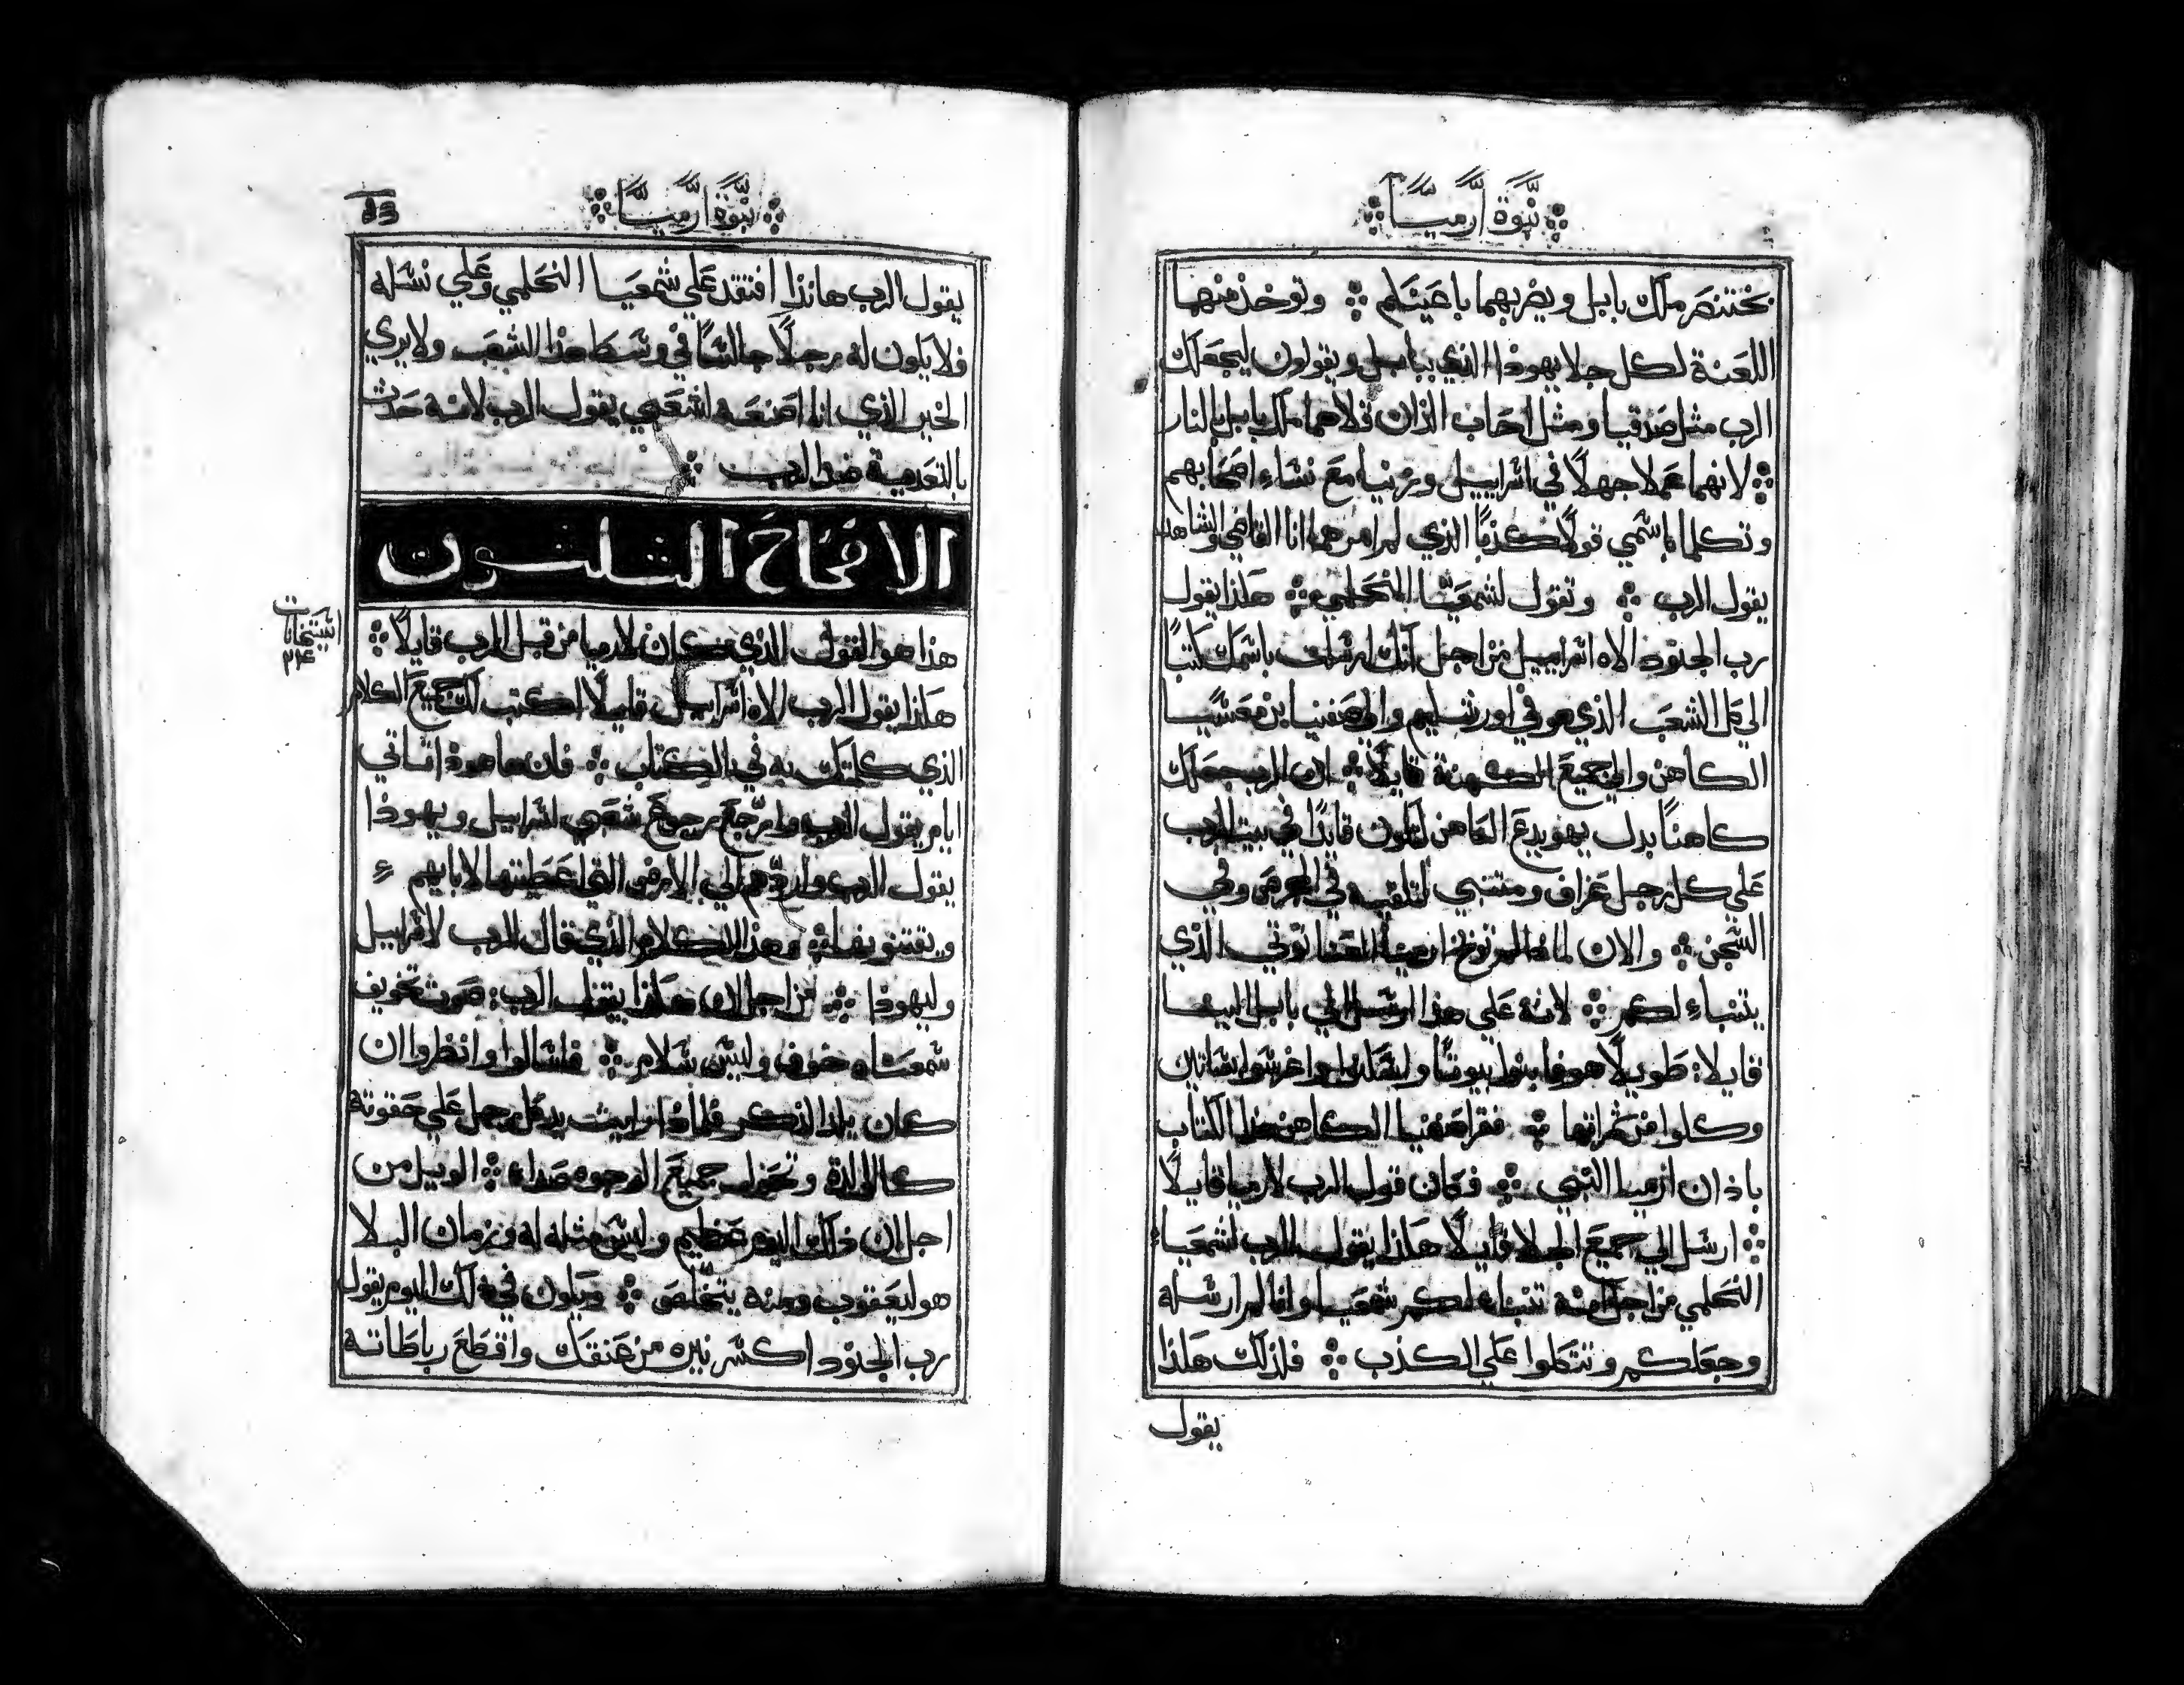 نبوة ارميا
بختنصر ملك بابل ويضربهما باعينكم ※ وتوخذ منهما
اللعنة لكل جلا يهوذا الذي ببابل ويقولون ليجعلك
الرب مثل صدقيا ومثل احاب الذان قلاهما ملك بابل بالنار
※ لانهما عملا جهلًا في اسراييل وزنيا مع نساء اصحابهم
وتكلما باسمي قولًا كذبًا الذي لم امرهما انا القاضي والشاهد
يقول الرب ※ وتقول لشمعيا النحلمي ※ هكذا يقول
رب الجنود الاه اسراييل من اجل انك ارسلت باسمك كتبًا
الي كل الشعب الذي هو في اورشليم والي صفنيا بن معسيا
الكاهن والي جميع الكهنة قايلًا ※ ان الرب جعلك
كاهنًا بدل يهويدع الكاهن لتكون قايدًا في بيت الرب
علي كل رجل عراف ومتنبي لتلقيه في وفي
السجن ※ والان لماذا لم توبخ ارميا العناتوتي الذي
يتنباء لكم ※ لانه علي هذا ارسل الي بابل الينا
قايلا: طويلًا هو فابنوا بيوتًا واسكنوا واغرسوا بساتين
وكلوا من ثمراتها ※ فقرا صفنيا الكاهن هذا الكتاب
باذان ارميا النبي ※ فكان قول الرب لارميا قايلًا
※ ارسل الي جميع الجلا قايلًا هكذا يقول الرب لشمعيا
النحلمي من اجل انه تنباء لكم شمعيا وانا لم ارسله
وجعلكم وتتكلوا علي الكذب ※ فلذلك هكذا
يقول
نبوة ارميا
يقول الرب هانذا افتقد علي شمعيا النحلمي وعلي نسله
فلا يكون له رجلًا جالسًا في وسط هذا الشعب ولا يري
الخير الذي انا اصنعه لشعبي يقول الرب لانه حدث
بالتعدية ضد الرب ※
الاصحاح الثلثون
هذا هو القول الذي كان لارميا من قبل الرب قايلًا ※
هكذا يقول الرب الاه اسراييل قايلًا اكتب لك جميع الكلام
الذي كلمتك به في الكتاب ※ فان ها هوذا تاتي
ايام يقول الرب وارجع رجوع شعبي اسراييل ويهوذا
يقول الرب واردهم الي الارض التي اعطيتها لابايهم
ويقتنونها ※ وهذا الكلام الذي قال الرب لاسراييل
وليهوذا ※ من اجل ان هكذا يقول الرب: صوت تخويف
سمعناه خوف وليس سلام ※ فاسالوا وانظروا ان
كان يلد الذكر فلماذا رايت يد كل رجل علي حقوته
كالوالدة وتحول جميع الوجوه صداء ※ الويل من
اجل ان ذلك اليوم عظيم وليس مثله له وزمان البلا
هو ليعقوب ومنه يتخلص ※ ويكون في ذلك اليوم يقول
رب الجنود اكسر نيره من عنقك واقطع رباطاته